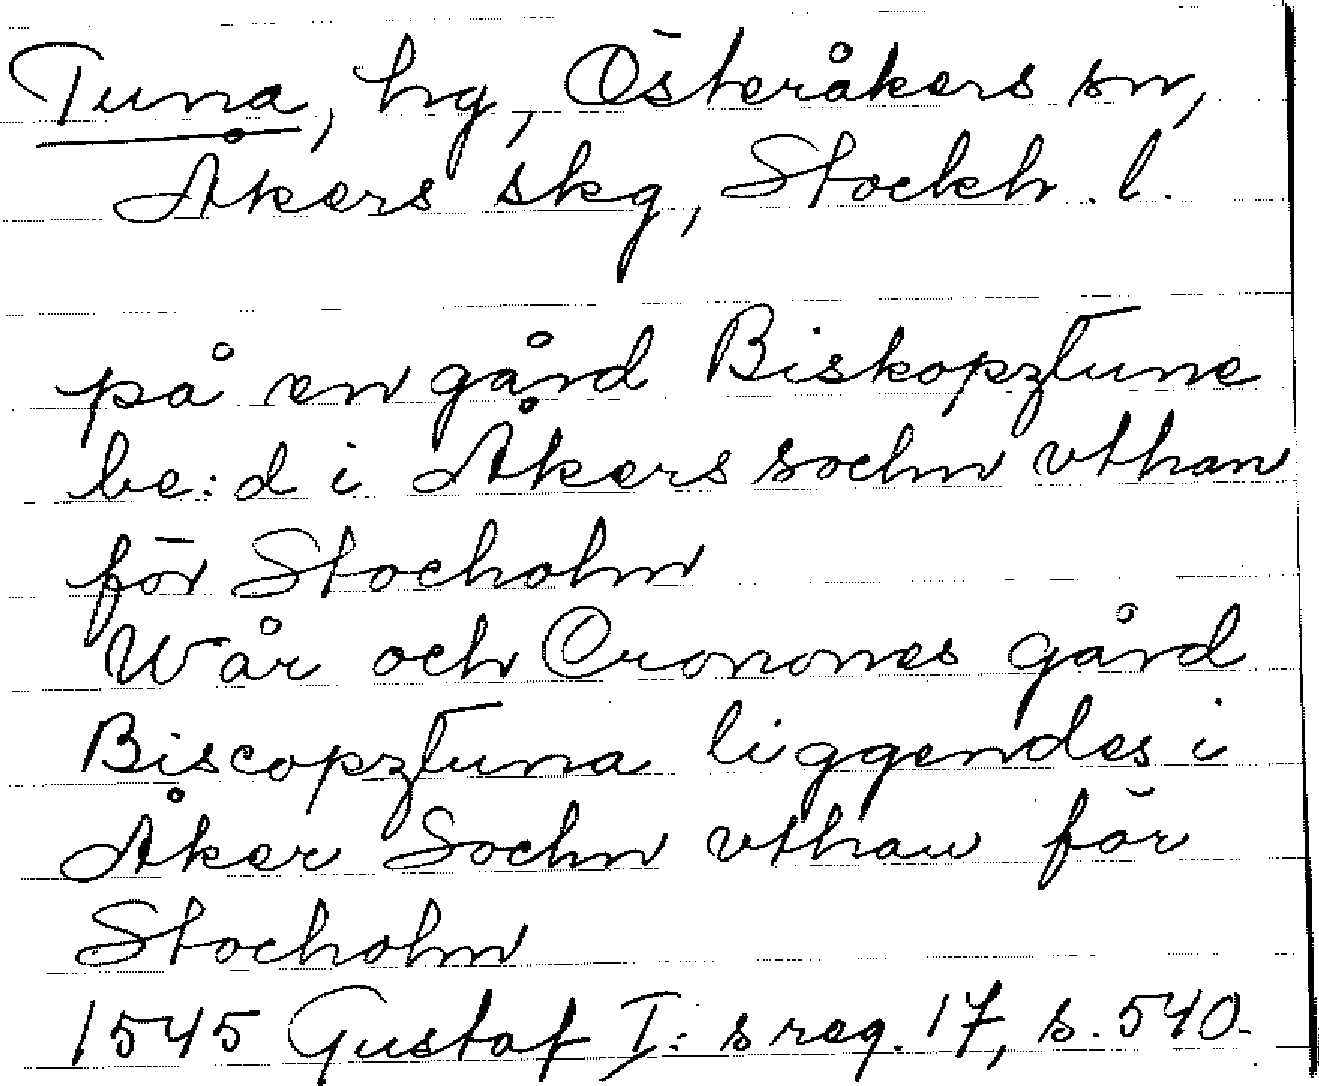 Tuna, hg, Österåkers sn,
Åkers skg, Stockh. l.
på en gård Biskopztune
be:d i Åkers sochn vthan
för Stocholm
Wår och Cronones gård
Biscopztuna liggendes i
Åker Sochn vthan för
Stocholm
1545 Gustaf I:s reg. 17, s. 540.